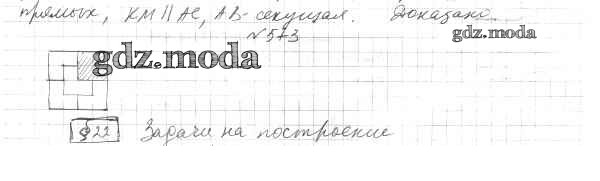 прямых, KM || AC, AB - секущая. Доказано.
№ 573
gdz.moda
gdz.moda
§ 22 Задачи на построение